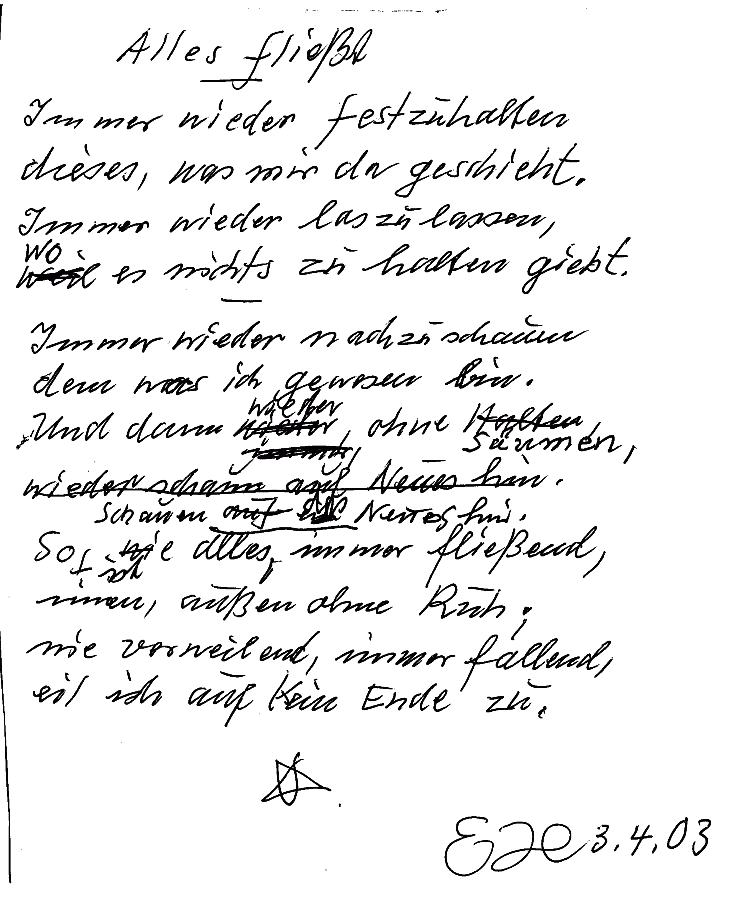 Alles fließt
Immer wieder festzuhalten
dieses, was mir da geschieht.
Immer wieder loszulassen,
wo
weil es nichts zu halten giebt.
Immer wieder nachzuschauen
dem was ich gewesen bin.
wieder
Und dann wieder, ohne Halten,
Säumen,
wieder schaun auf Neues hin.
Schauen auf Neues hin.
So, wie alles, immer fließend,
ich
innen, außen ohne Ruh,
nie verweilend, immer fallend,
eil ich auf kein Ende zu.
3.4.03